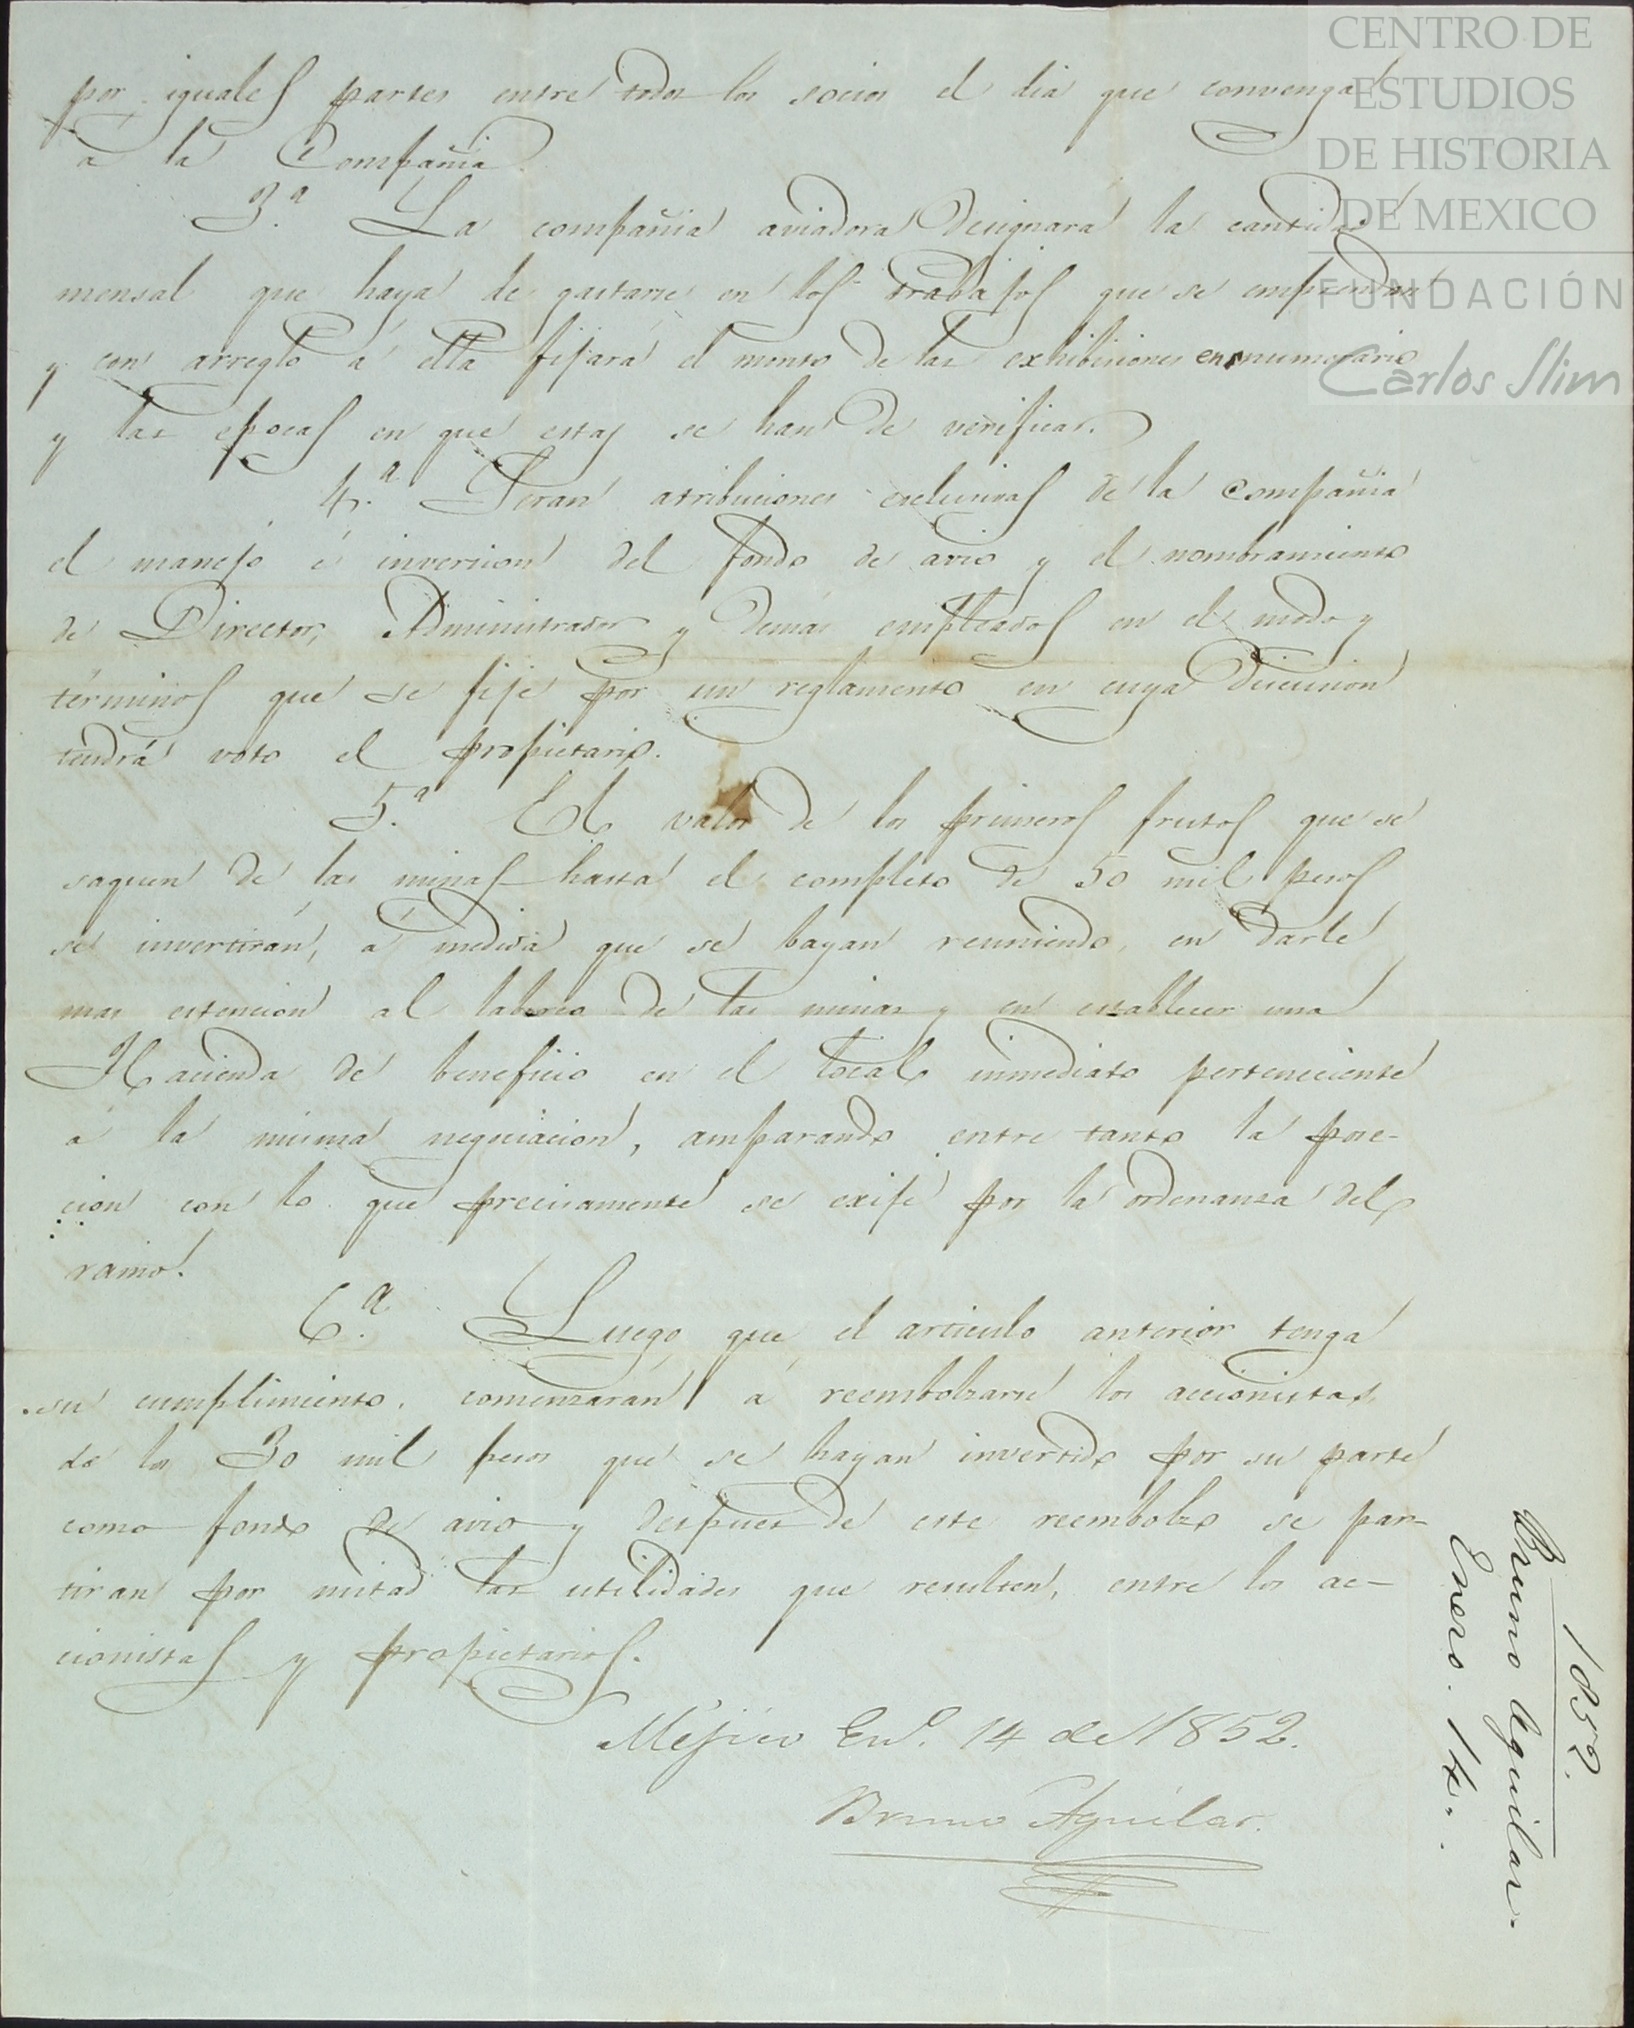 por iguales partes entre todos los socios el dia que convenga
a la Compañia.
3.ª La compañia aviadora designará la cantidad
mensal que haya de gastarse en los trabajos que se emprendan
y con arreglo á ella fijará el monto de las exhibiciones en numerario
y las epocas en que estas se han de verificar.
4.ª Seran atribuciones esclusivas de la Compañia
el manejo é inversion del fondo de avio y el nombramiento
de Director, Administrador y demás empleados en el modo y
términos que se fije por un reglamento en cuya discusion
tendrá voto el propietario.
5.ª El valor de los primeros frutos que se
saquen de las minas hasta el completo de 50 mil pesos
se invertirán, á medida que se bayan reuniendo, en darle
mas estencion al laboreo de las minas y en establecer una
Hacienda de beneficio en el local inmediato perteneciente
á la misma negociacion, amparando entre tanto la pose-
cion con lo que precisamente se exije por la ordenanza del
ramo.
6.ª Luego que el articulo anterior tenga
su cumplimiento, comenzarán á reembolzarse los accionistas
de los 30 mil pesos que se hayan invertido por su parte
como fondo de avio y despues de este reembolzo se par-
tiran por mitad las utilidades que resulten, entre los ac-
cionistas y propietarios.
Méjico En.º 14 de 1852.
Bruno Aguilar.
1852.
Bruno Aguilar.
Enero. 14.
CENTRO DE
ESTUDIOS
DE HISTORIA
DE MEXICO
FUNDACIÓN
Carlos Slim